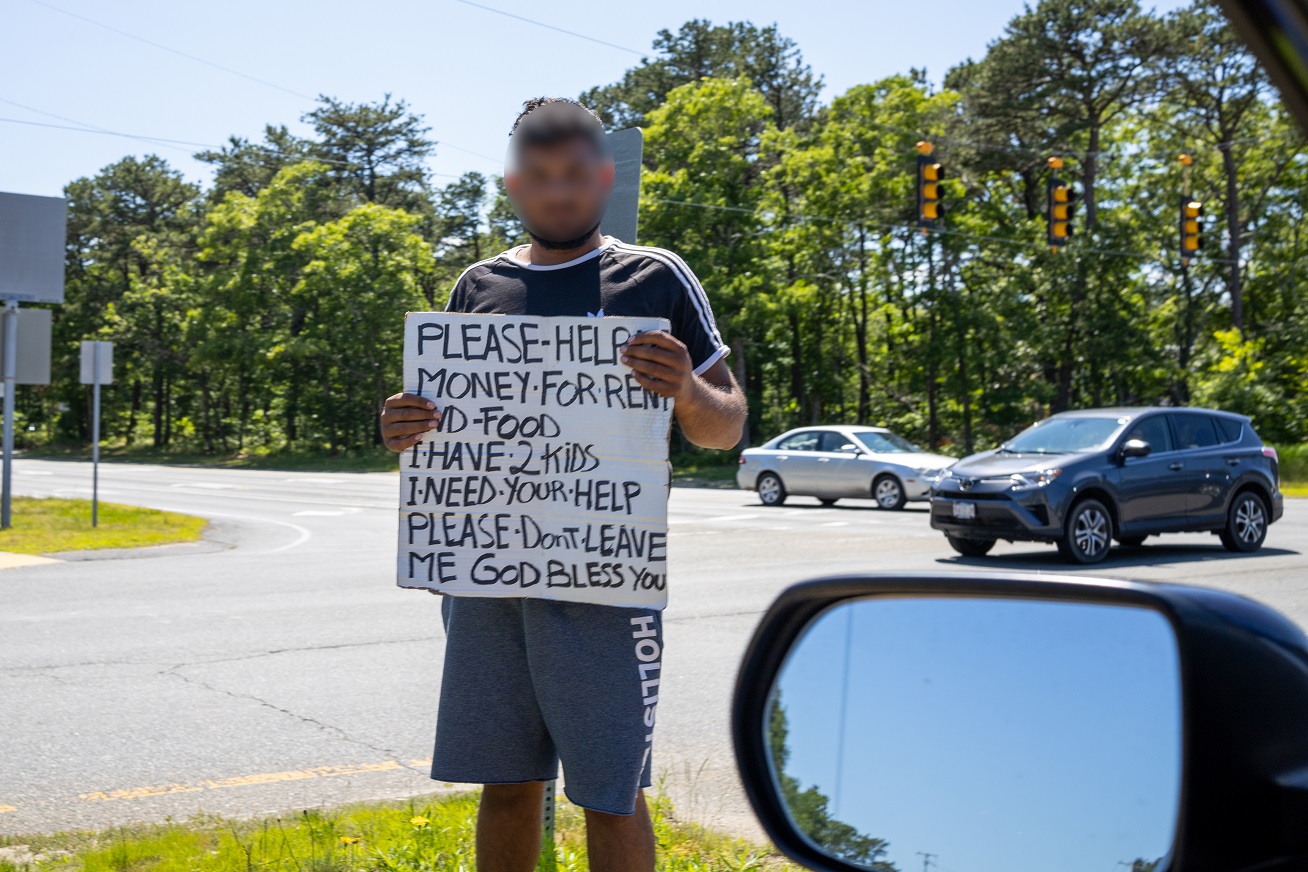 PLEASE-HELP
MONEY·FOR·RENT
ND-FOOD
I·HAVE·2·KiDS
I·NEED·YOUR·HELP
PLEASE·DonT·LEAVE
ME GOD BLESS YOU
HOLLIST